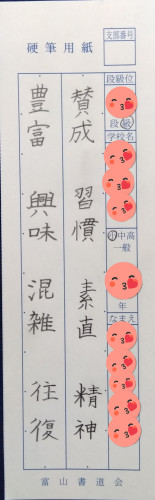 硬筆用紙
支部番号
段級位
段 級
学校名
小中高
一般
年
なまえ
賛成 習慣 素直 精神
豊富 興味 混雑 往復
富山書道会